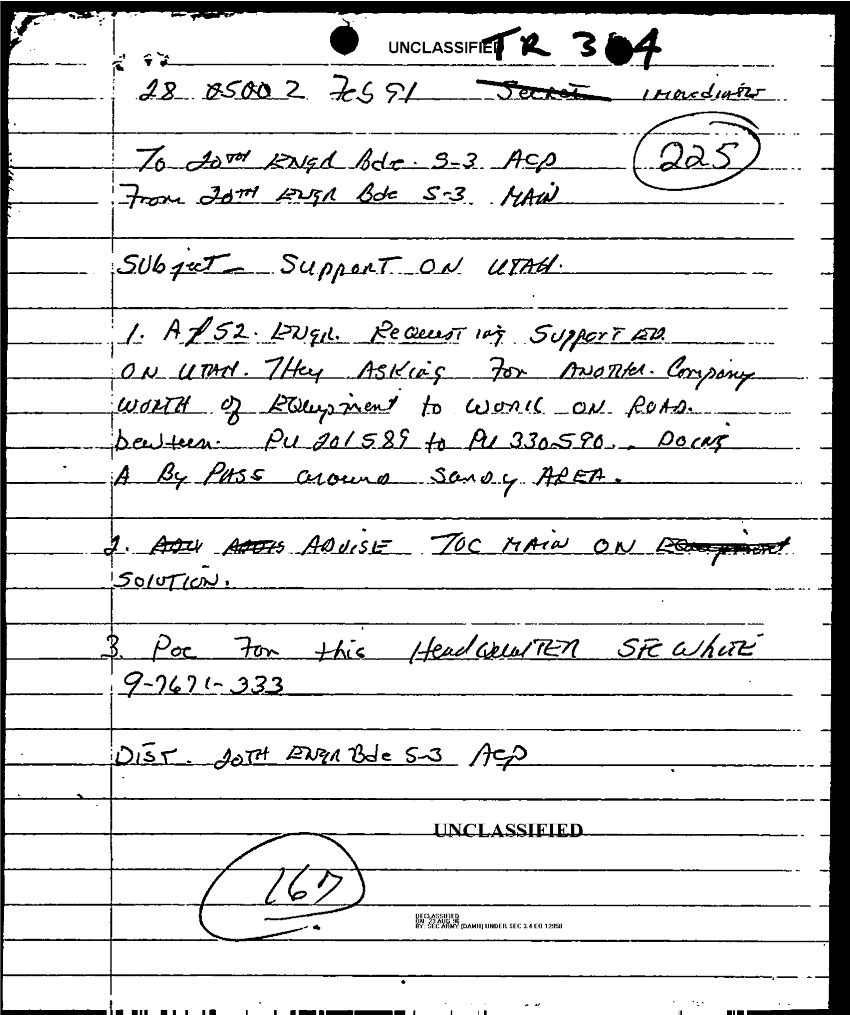 UNCLASSIFIED TR 304
28 0500 Z Feb 91 Secret immediate
225
To 20TH ENGR Bde. S-3 ACP
From 20TH ENGR Bde S-3 MAIN
Subject- Support ON UTAH.
1. A/52. ENGR. Requesting Support ED.
ON UTAH. They ASKing For ANOTHER. Company
WORTH of EQuipment to WORK ON ROAD.
bewteen. PU 201589 to PU 330590.. DOING
A By PASS around Sandy AREA.
2. ADVISE TOC MAIN ON
SOLUTION.
3. Poc For this HeadquarTER SFC White
9-7671-333
DIST. 20TH ENGR Bde S-3 ACP
UNCLASSIFIED
167
DECLASSIFIED
ON: 23 AUG 96
BY: SEC ARMY (DAMH) UNDER SEC 3.4 EO 12958